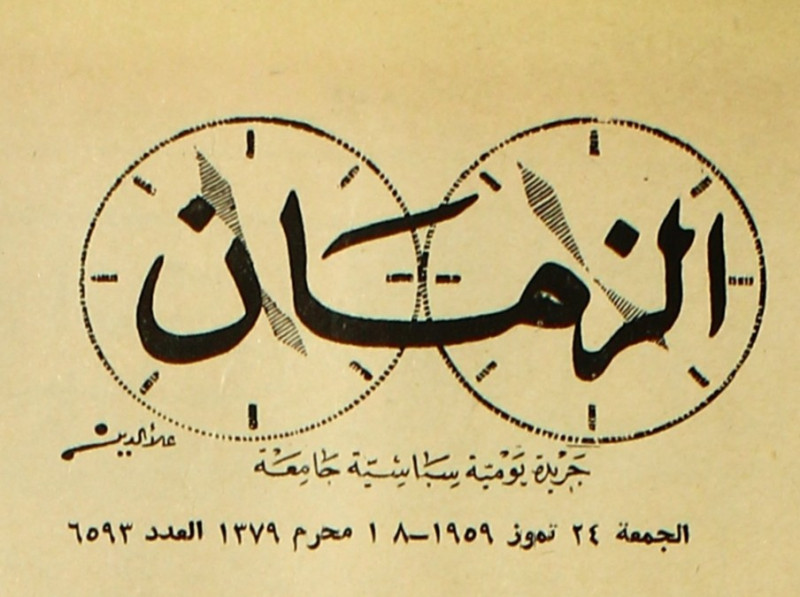 الزمان
علاء الدين
جريدة يومية سياسية جامعة
الجمعة ٢٤ تموز ١٩٥٩-٨ ١ محرم ١٣٧٩ العدد ٦٥٩٣